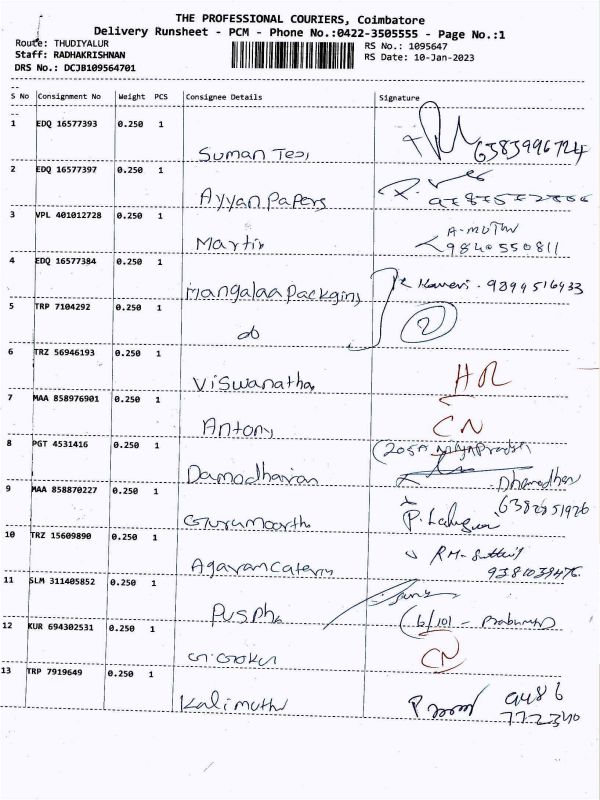 THE PROFESSIONAL COURIERS, Coimbatore
Delivery Runsheet - PCM - Phone No.:0422-3505555 - Page No.:1
Route: THUDIYALUR
RS No.: 1095647
Staff: RADHAKRISHNAN
RS Date: 10-Jan-2023
DRS No.: DCJB109564701
S No Consignment No Weight PCS Consignee Details Signature
1 EDQ 16577393 0.250 1 Suman Tex, 6383996724
2 EDQ 16577397 0.250 1 Ayyan Papers
3 VPL 401012728 0.250 1 Martin A-MUTHU 9840550811
4 EDQ 16577384 0.250 1 Mangalaa Packging Kaveri - 9894516933
5 TRP 7104292 0.250 1 do 2
6 TRZ 56946193 0.250 1 Viswanathan
7 MAA 858976901 0.250 1 Antony CN
8 PGT 4531416 0.250 1 Damodharan Dhamodhar
9 MAA 858870227 0.250 1 Gurumoorth
10 TRZ 15609890 0.250 1 Agaram Catering
11 SLM 311405852 0.250 1 Puspha
12 KUR 694302531 0.250 1 CN
13 TRP 7919649 0.250 1 Kalimuthu 9486
772340